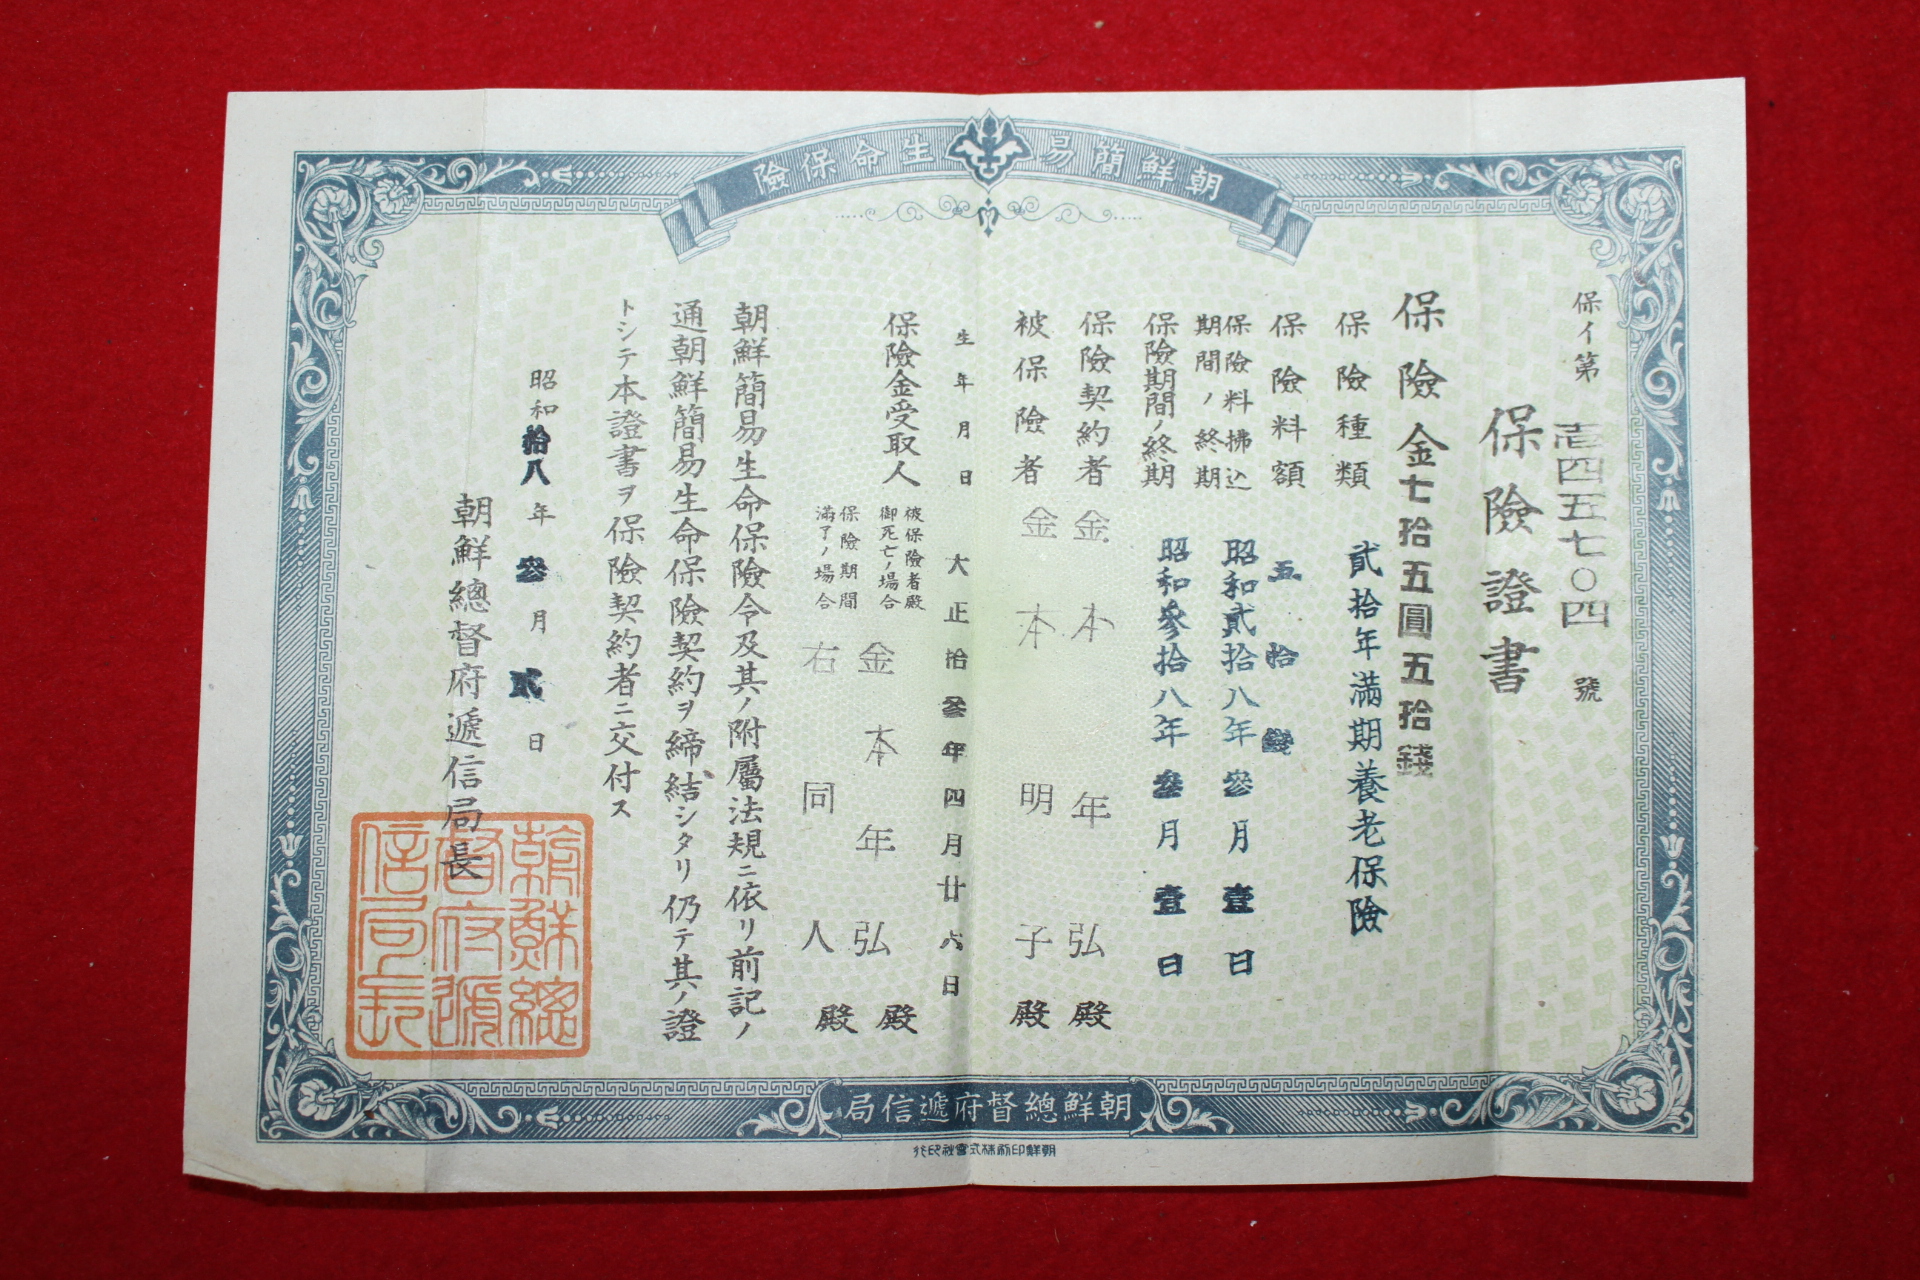 朝鮮簡易生命保險
保イ第壱四五七〇四號
保險證書
保險金七拾五圓五拾錢
保險種類 貳拾年滿期養老保險
保險料額 五拾錢
保險料拂込期間ノ終期 昭和貳拾八年參月壹日
保險期間ノ終期 昭和參拾八年參月壹日
保險契約者 金本年弘殿
被保險者 金本明子殿
生年月日 大正拾參年四月廿六日
保險金受取人 被保險者殿御死亡ノ場合 金本年弘殿
保險期間滿了ノ場合 右同人殿
朝鮮簡易生命保險令及其ノ附屬法規ニ依リ前記ノ
通朝鮮簡易生命保險契約ヲ締結シタリ仍テ其ノ證
トシテ本證書ヲ保險契約者ニ交付ス
昭和拾八年參月貳日
朝鮮總督府遞信局長
朝鮮總督府遞信局長
朝鮮總督府遞信局
朝鮮印刷株式會社印行